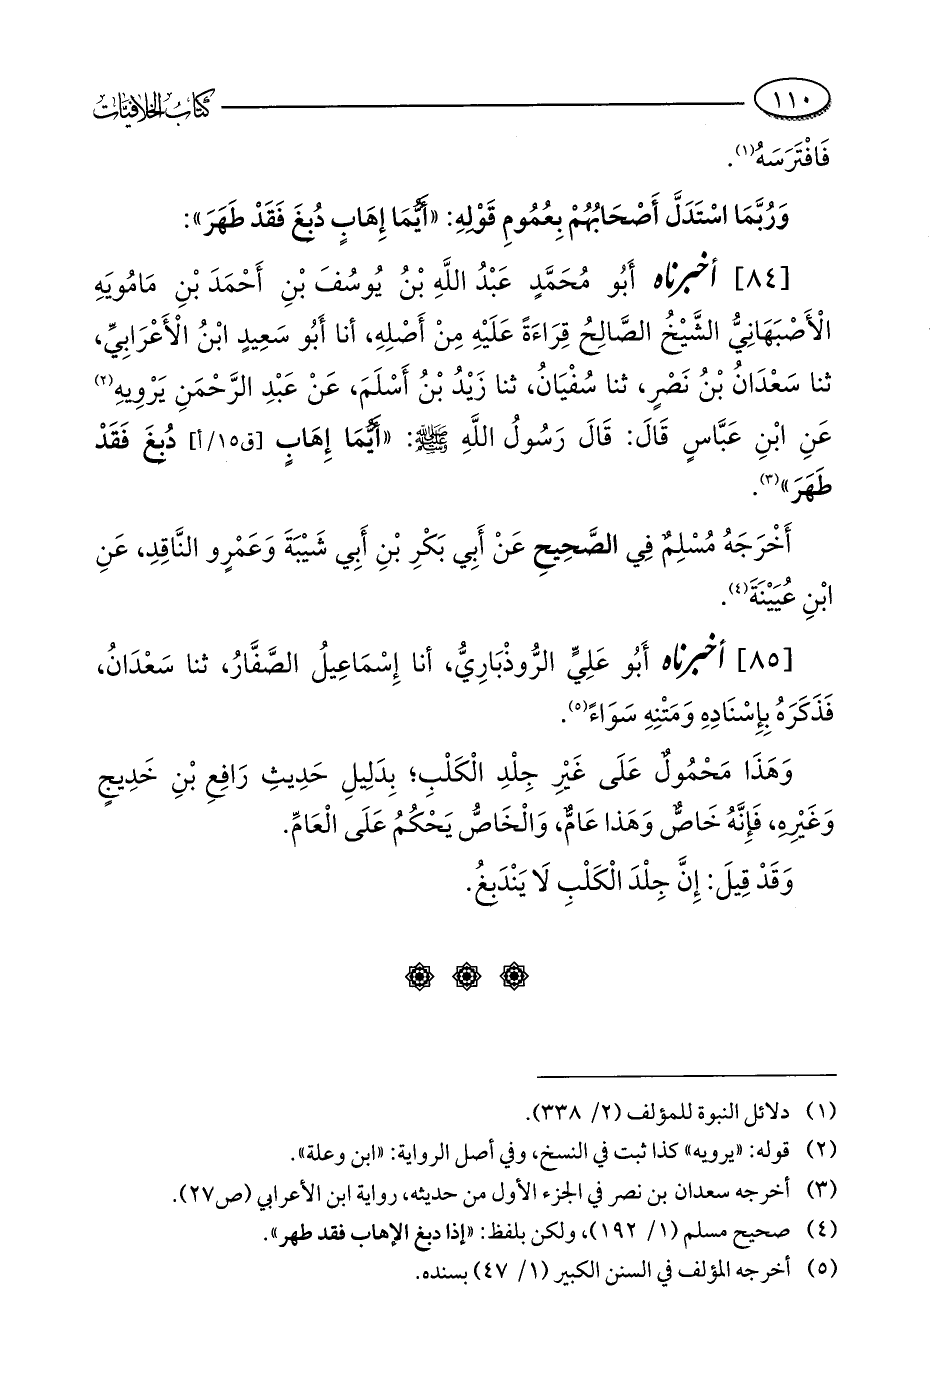 ١١٠ كتاب الخلافيات
فَافْتَرَسَهُ(١).
وَرُبَّمَا اسْتَدَلَّ أَصْحَابُهُمْ بِعُمُومِ قَوْلِهِ: «أَيُّمَا إِهَابٍ دُبِغَ فَقَدْ طَهَرَ»:
[٨٤] أخبرناه أَبُو مُحَمَّدٍ عَبْدُ اللَّهِ بْنُ يُوسُفَ بْنِ أَحْمَدَ بْنِ مَامُويَهِ
الْأَصْبَهَانِيُّ الشَّيْخُ الصَّالِحُ قِرَاءَةً عَلَيْهِ مِنْ أَصْلِهِ، أنا أَبُو سَعِيدٍ ابْنُ الْأَعْرَابِيِّ،
ثنا سَعْدَانُ بْنُ نَصْرٍ، ثنا سُفْيَانُ، ثنا زَيْدُ بْنُ أَسْلَمَ، عَنْ عَبْدِ الرَّحْمَنِ يَرْوِيهِ(٢)
عَنِ ابْنِ عَبَّاسٍ قَالَ: قَالَ رَسُولُ اللَّهِ ﷺ: «أَيُّمَا إِهَابٍ [ق١٥/أ] دُبِغَ فَقَدْ
طَهَرَ»(٣).
أَخْرَجَهُ مُسْلِمٌ فِي الصَّحِيحِ عَنْ أَبِي بَكْرِ بْنِ أَبِي شَيْبَةَ وَعَمْرٍو النَّاقِدِ، عَنِ
ابْنِ عُيَيْنَةَ(٤).
[٨٥] أخبرناه أَبُو عَلِيٍّ الرُّوذْبَارِيُّ، أنا إِسْمَاعِيلُ الصَّفَّارُ، ثنا سَعْدَانُ،
فَذَكَرَهُ بِإِسْنَادِهِ وَمَتْنِهِ سَوَاءً(٥).
وَهَذَا مَحْمُولٌ عَلَى غَيْرِ جِلْدِ الْكَلْبِ؛ بِدَلِيلِ حَدِيثِ رَافِعِ بْنِ خَدِيجٍ
وَغَيْرِهِ، فَإِنَّهُ خَاصٌّ وَهَذا عَامٌّ، وَالْخَاصُّ يَحْكُمُ عَلَى الْعَامِّ.
وَقَدْ قِيلَ: إِنَّ جِلْدَ الْكَلْبِ لَا يَنْدَبِغُ.
(١) دلائل النبوة للمؤلف (٢/ ٣٣٨).
(٢) قوله: «يرويه» كذا ثبت في النسخ، وفي أصل الرواية: «ابن وعلة».
(٣) أخرجه سعدان بن نصر في الجزء الأول من حديثه، رواية ابن الأعرابي (ص٢٧).
(٤) صحيح مسلم (١/ ١٩٢)، ولكن بلفظ: «إذا دبغ الإهاب فقد طهر».
(٥) أخرجه المؤلف في السنن الكبير (١/ ٤٧) بسنده.